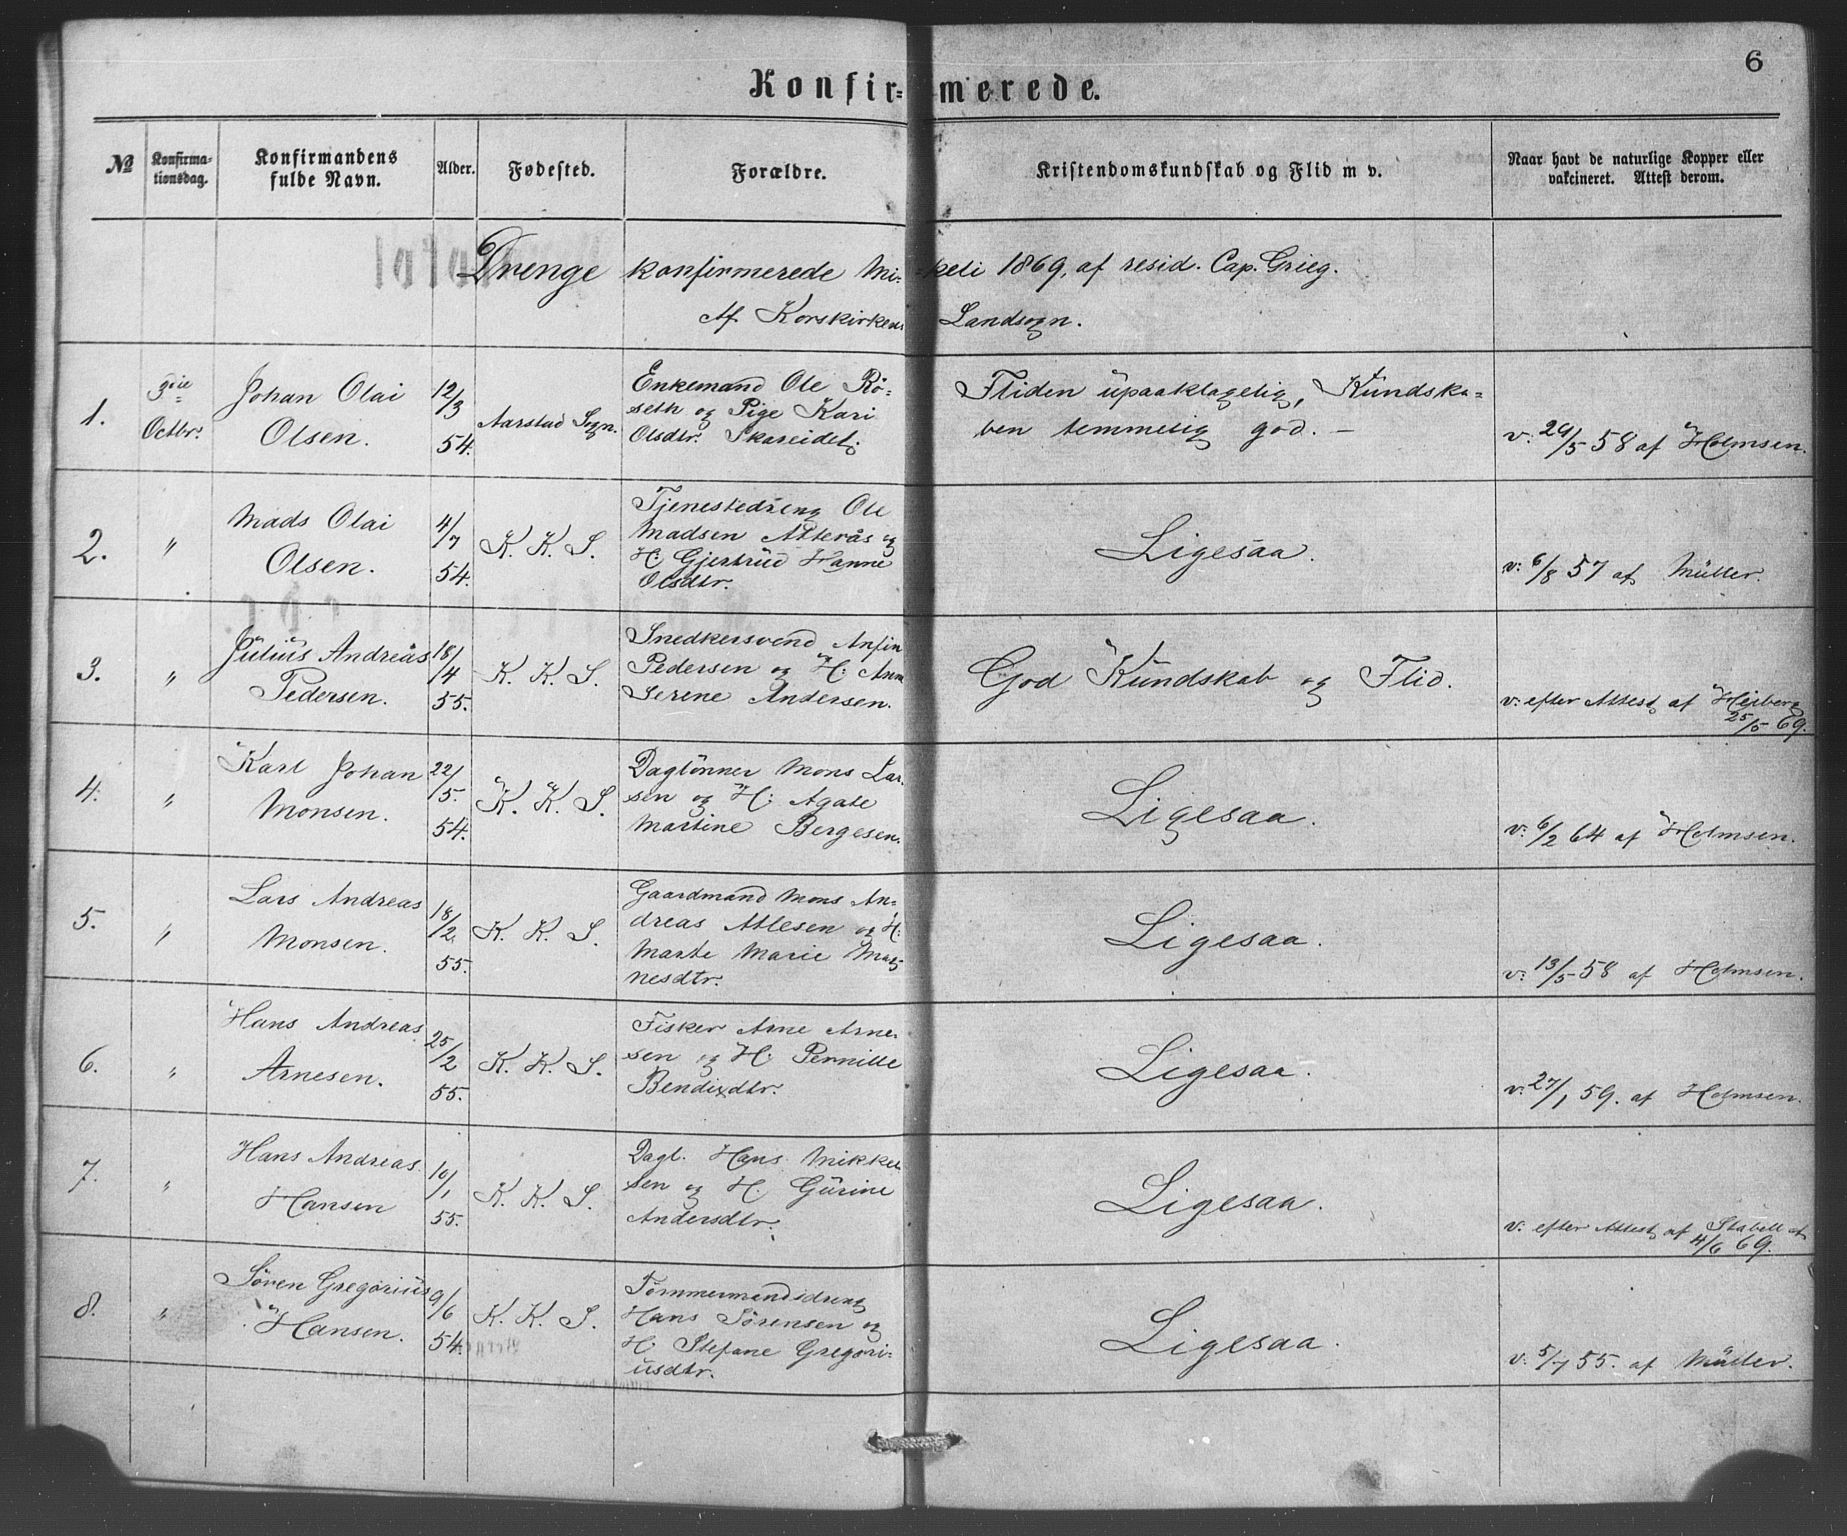 6
Konfirmerede.
№
Konfirma-
tionsdag.
Konfirmandens
fulde Navn.
Alder.
Fødested.
Forældre.
Kristendomskundskab og Flid m v.
Naar havt de naturlige Kopper eller
vakcineret. Attest derom.
Drenge konfirmerede Mi-keli 1869, af resid. Cap. Grieg.
Af Korskirkens Landsogn.
1.
3die
Octbr.
Johan Olai
Olsen.
12/3
54.
Aarstad Sogn.
Enkemand Ole Rö-
seth og Pige Kari
Olsdtr. Skareidet.
Fliden upaaklagelig, Kundska-
ben temmelig god. –
v. 29/5 58 af Holmsen.
2.
"
Mads Olai
Olsen.
4/7
54.
K. K. S.
Tjenestedreng Ole
Madsen Atterås og
H. Gjertrud Hanne
Olsdtr.
Ligesaa.
v. 6/8 57 af Müller.
3.
"
Julius Andreas
Pedersen.
18/4
55.
K. K. S.
Snedkersvend Anfin
Pedersen og H. Anna
Serene Andersen.
God Kundskab og Flid.
v. efter Attest af Heiberg
25/5 69.
4.
"
Karl Johan
Monsen.
22/5.
54.
K. K. S.
Daglönner Mons Lar-
sen og H. Agate
Martine Bergesen.
Ligesaa.
v. 6/2 64 af Holmsen.
5.
"
Lars Andreas
Monsen.
18/2.
55.
K. K. S.
Gaardmand Mons An-
dreas Atlesen og H.
Marte Marie
nesdtr.
Ligesaa.
v. 13/5 58 af Holmsen.
6.
"
Hans Andreas
Arnesen.
25/2
55.
K. K. S.
Fisker Arne Arne-
sen og H. Pernille
Bendixdtr.
Ligesaa.
v. 27/1 59. af Holmsen.
7.
"
Hans Andreas
Hansen
10/1
55.
K. K. S.
Dagl. Hans Mikkel
sen og H. Gurine
Andersdtr.
Ligesaa.
v. efter Attest af Stabell af
4/6 69.
8.
"
Sören Gregorius
Hansen.
9/6
54.
K. K. S.
Tömmermandsdreng
Hans Sörensen og
H. Stefane Gregori-
usdtr.
Ligesaa.
v. 5/7 55. af Müller.